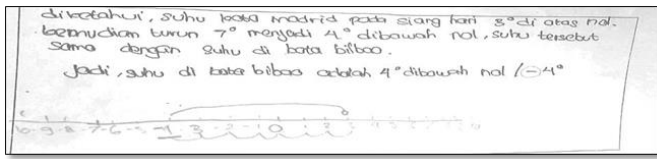 diketahui, suhu kota madrid pada siang hari 3° di atas nol.
kemudian turun 7° menjadi 4° dibawah nol, suhu tersebut
sama dengan suhu di kota bilbao.
Jadi, suhu di kota bibao adalah 4° dibawah nol / -4°